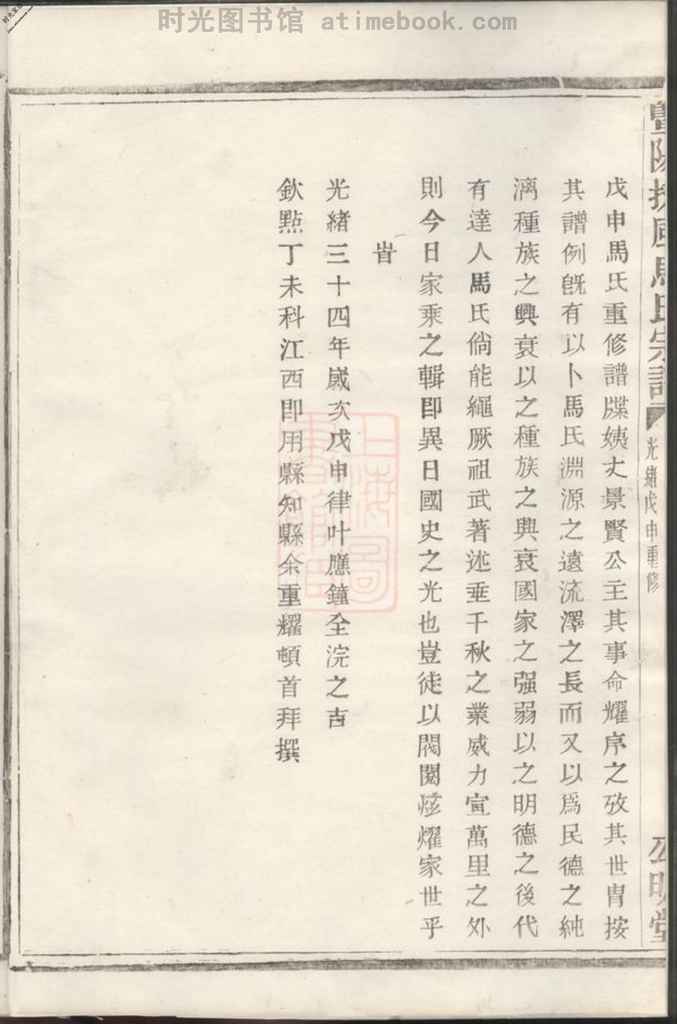 时光图书馆 atimebook.com
豐陽扶風馬氏宗譜 光緒戊申重修 公明堂
戊申馬氏重修譜牒姨丈景賢公主其事命耀序之攷其世冑按
其譜例旣有以卜馬氏淵源之遠流澤之長而又以爲民德之純
漓種族之興衰以之種族之興衰國家之强弱以之明德之後代
有達人馬氏倘能繩厥祖武著述垂千秋之業威力宣萬里之外
則今日家乘之輯即異日國史之光也豈徒以閥閱炫耀家世乎
旹
光緒三十四年歲次戊申律叶應鐘全浣之吉
欽點丁未科江西即用縣知縣余重耀頓首拜撰
上海圖